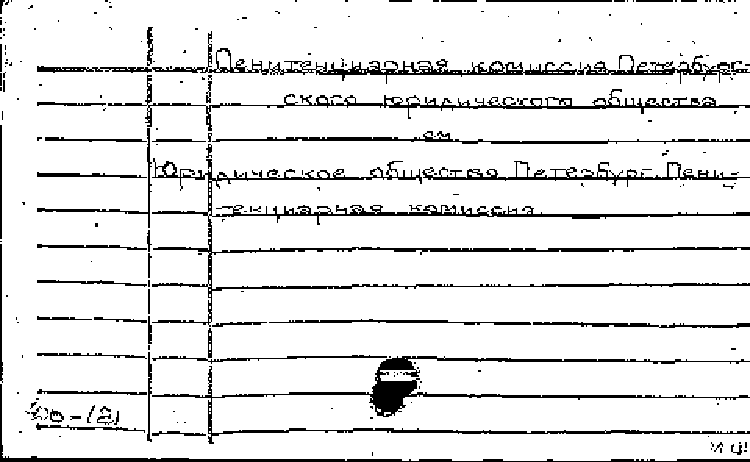 Пенитенциарная комиссия Петербург-
ского юридического общества
см
Юридическое общество Петербург. Пени-
тенциарная комиссия